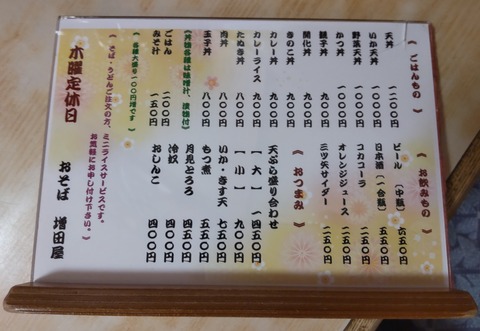 《 ごはんもの 》
天丼 一二〇〇円
いか天丼 一〇〇〇円
野菜天丼 一〇〇〇円
かつ丼 一〇〇〇円
親子丼 九〇〇円
開化丼 九〇〇円
きのこ丼 九〇〇円
カレー丼 九〇〇円
カレーライス 九〇〇円
たぬき丼 八〇〇円
肉丼 八〇〇円
玉子丼 八〇〇円
《丼物各種は味噌汁、漬物付》
ごはん 二〇〇円
みそ汁 一五〇円
《 各種大盛り一〇〇円増です 》
《 お飲みもの 》
ビール (中瓶) 六五〇円
日本酒 (一合瓶) 五五〇円
コカコーラ 二五〇円
オレンジジュース 二五〇円
三ツ矢サイダー 二五〇円
《 おつまみ 》
天ぷら盛り合わせ
【 大 】 一四五〇円
【 小 】 九〇〇円
いか・きす天 七五〇円
もつ煮 五五〇円
月見とろろ 四五〇円
冷奴 四〇〇円
おしんこ 四〇〇円
《 そば・うどんご注文の方、ミニライスサービスです。
お気軽にお申し付け下さい。 》
木曜定休日
おそば 増田屋